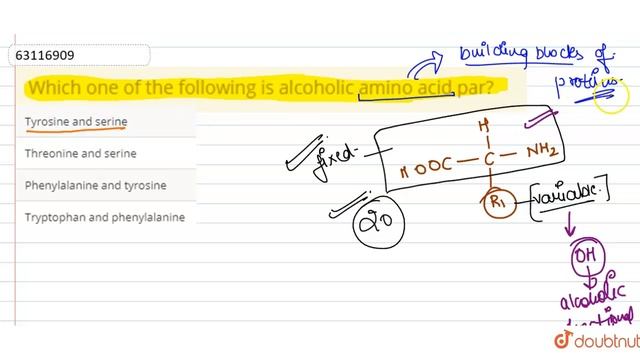 63116909
building blocks of
Which one of the following is alcoholic amino acid par?
proteins
Tyrosine and serine
Threonine and serine
Phenylalanine and tyrosine
Tryptophan and phenylalanine
fixed
H
HOOC — C — NH2
R1
[variable]
20
OH
alcoholic
functional
doubtnut